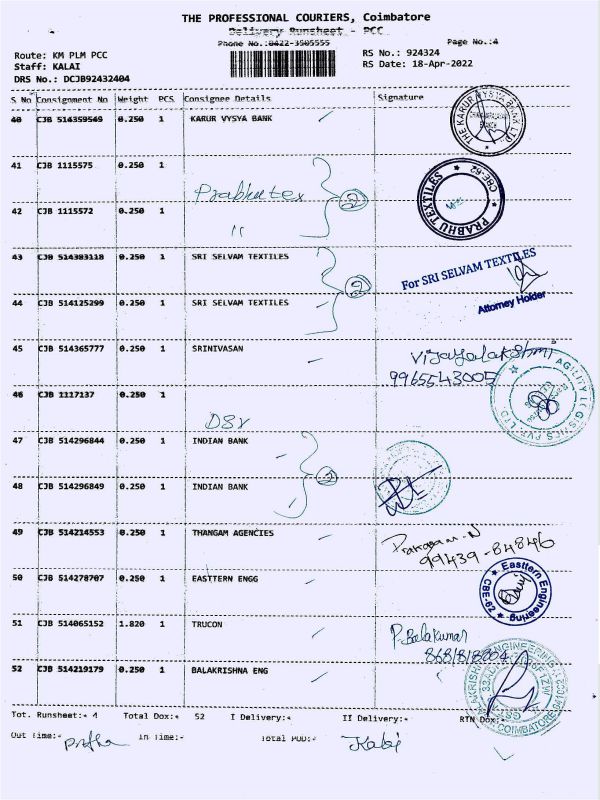 THE PROFESSIONAL COURIERS, Coimbatore
Delivery Runsheet - PCC
Phone No.:0422-3505555
Page No.:4
Route: KM PLM PCC
RS No.: 924324
Staff: KALAI
RS Date: 18-Apr-2022
DRS No.: DCJB92432404
S No Consignment No Weight PCS Consignee Details Signature
40 CJB 514359549 0.250 1 KARUR VYSYA BANK
THE KARUR VYSYA BANK LTD
BRANCH
41 CJB 1115575 0.250 1
Prabhutex
2
CBE-62
PRABHU TEXTILES
42 CJB 1115572 0.250 1
"
43 CJB 514383118 0.250 1 SRI SELVAM TEXTILES
For SRI SELVAM TEXTILES
2
Attorney Holder
44 CJB 514125299 0.250 1 SRI SELVAM TEXTILES
45 CJB 514365777 0.250 1 SRINIVASAN
Vijayalakshmi
9965543005
46 CJB 1117137 0.250 1
DSV
AGILITY LOGISTICS PVT. LTD
47 CJB 514296844 0.250 1 INDIAN BANK
2
48 CJB 514296849 0.250 1 INDIAN BANK
49 CJB 514214553 0.250 1 THANGAM AGENCIES
99439-84846
50 CJB 514278707 0.250 1 EASTTERN ENGG
Easttern Engineering
CBE-62
51 CJB 514065152 1.820 1 TRUCON
P. Balakumar
52 CJB 514219179 0.250 1 BALAKRISHNA ENG
Tot. Runsheet:* 4 Total Dox:* 52 I Delivery:* II Delivery:* RTN Dox:*
Out Time:- In Time:- Total POD:-
Kalai